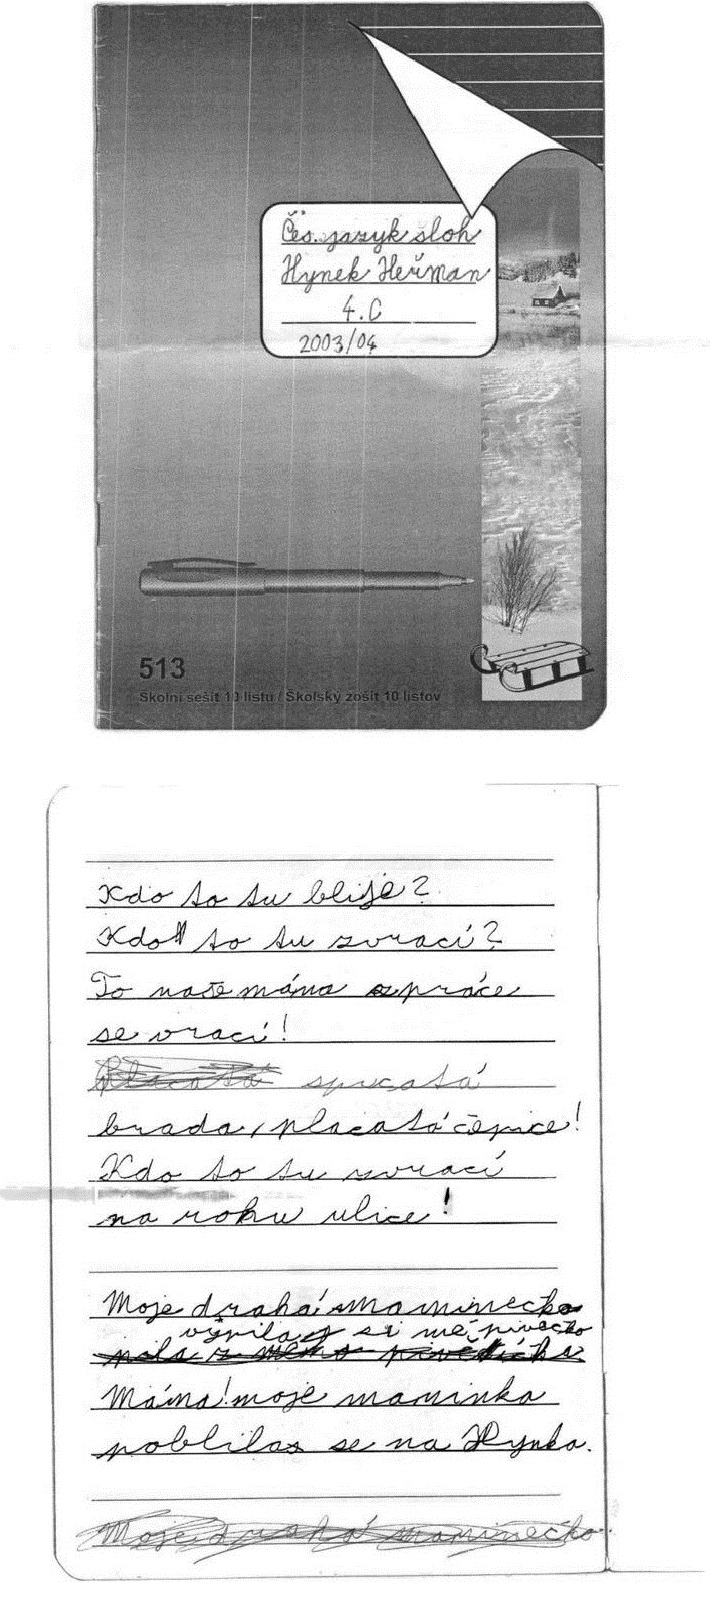 Čes. jazyk sloh
Hynek Heřman
4.C
2003/04
513
Školní sešit 10 listů / Školský zošit 10 listov
Kdo to tu blije?
Kdo to tu zvrací?
To naše máma z práce
se vrací!
Placatá sprcatá
brada, placatá čepice!
Kdo to tu zvrací
na rohu ulice!
Moje drahá maminečko
vypilas si mé pivečko
pila z mého
Máma! moje maminka
poblila se na Hynka.
Moje drahá maminečko